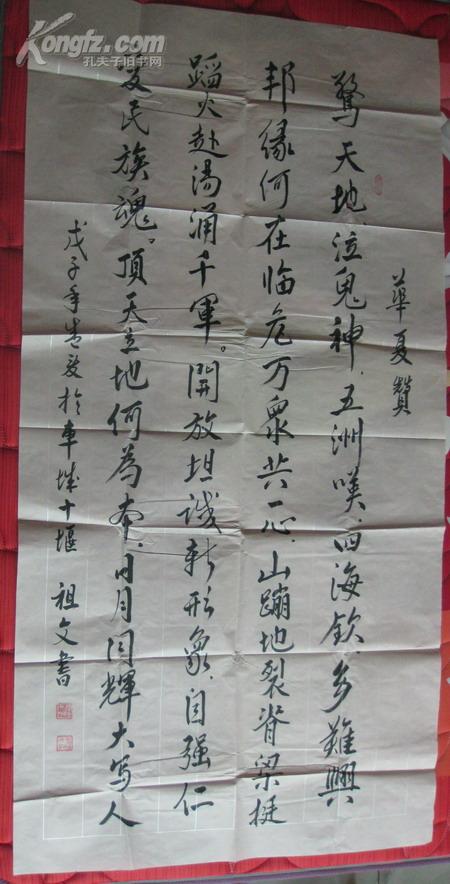 Kongfz.com
孔夫子旧书网
華夏贊
驚天地、泣鬼神、五洲嘆、四海欽、多難興
邦緣何在临危万衆共一心、山蹦地裂脊梁挺
蹈火赴湯涌千軍。開放坦诚新形象、自强仁
愛民族魂。頂天立地何為本、日月同輝大写人
戊子年於車城十堰 祖文書